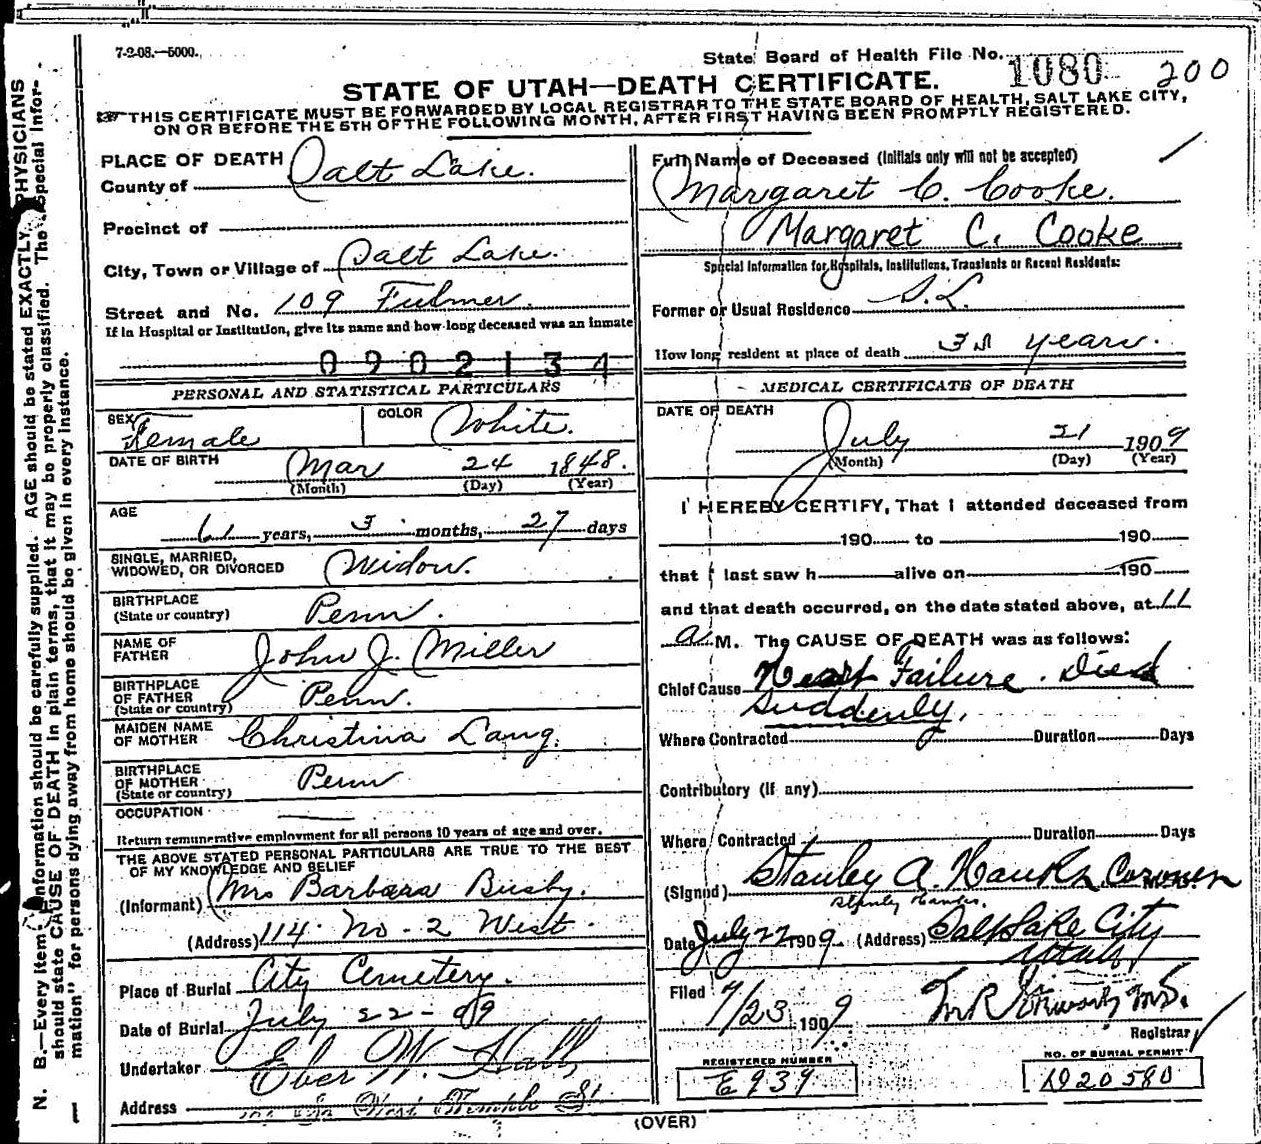 7-2-08.—5000.
State Board of Health File No. 1080 200
STATE OF UTAH—DEATH CERTIFICATE.
THIS CERTIFICATE MUST BE FORWARDED BY LOCAL REGISTRAR TO THE STATE BOARD OF HEALTH, SALT LAKE CITY,
ON OR BEFORE THE 5TH OF THE FOLLOWING MONTH, AFTER FIRST HAVING BEEN PROMPTLY REGISTERED.
PLACE OF DEATH
County of Salt Lake.
Precinct of
City, Town or Village of Salt Lake.
Street and No. 109 Fulmer.
If in Hospital or Institution, give its name and how long deceased was an inmate
0902134
PERSONAL AND STATISTICAL PARTICULARS
SEX Female COLOR White.
DATE OF BIRTH Mar 24 1848.
(Month) (Day) (Year)
AGE
61 years, 3 months, 27 days
SINGLE, MARRIED,
WIDOWED, OR DIVORCED Widow.
BIRTHPLACE
(State or country) Penn.
NAME OF
FATHER John J. Miller
BIRTHPLACE
OF FATHER
(State or country) Penn.
MAIDEN NAME
OF MOTHER Christina Lang.
BIRTHPLACE
OF MOTHER
(State or country) Penn
OCCUPATION
Return remunerative employment for all persons 10 years of age and over.
THE ABOVE STATED PERSONAL PARTICULARS ARE TRUE TO THE BEST
OF MY KNOWLEDGE AND BELIEF
(Informant) Mrs Barbara Busby.
(Address) 114 No - 2 West.
Place of Burial City Cemetery.
Date of Burial July 22 - 09
Undertaker Eber W. Hall
Address West Temple St.
Full Name of Deceased (Initials only will not be accepted)
Margaret C. Cooke.
Margaret C. Cooke
Special Information for Hospitals, Institutions, Transients or Recent Residents:
Former or Usual Residence S.L.
How long resident at place of death years.
MEDICAL CERTIFICATE OF DEATH
DATE OF DEATH
July 21 1909
(Month) (Day) (Year)
I HEREBY CERTIFY, That I attended deceased from
190 to 190
that I last saw h alive on 190
and that death occurred, on the date stated above, at 11
a M. The CAUSE OF DEATH was as follows:
Chief Cause Heart Failure. Died
Suddenly.
Where Contracted Duration Days
Contributory (if any)
Where Contracted Duration Days
(Signed) Stanley A. Hanks Coroner
Stanley Hanks.
Date July 22 1909 (Address) Salt Lake City
Utah
Filed 7/23 1909 M.D.
Registrar
REGISTERED NUMBER
E939
NO. OF BURIAL PERMIT
D20580
(OVER)
N. B.—Every item of information should be carefully supplied. AGE should be stated EXACTLY. PHYSICIANS
should state CAUSE OF DEATH in plain terms, that it may be properly classified. The "Special Infor-
mation" for persons dying away from home should be given in every instance.